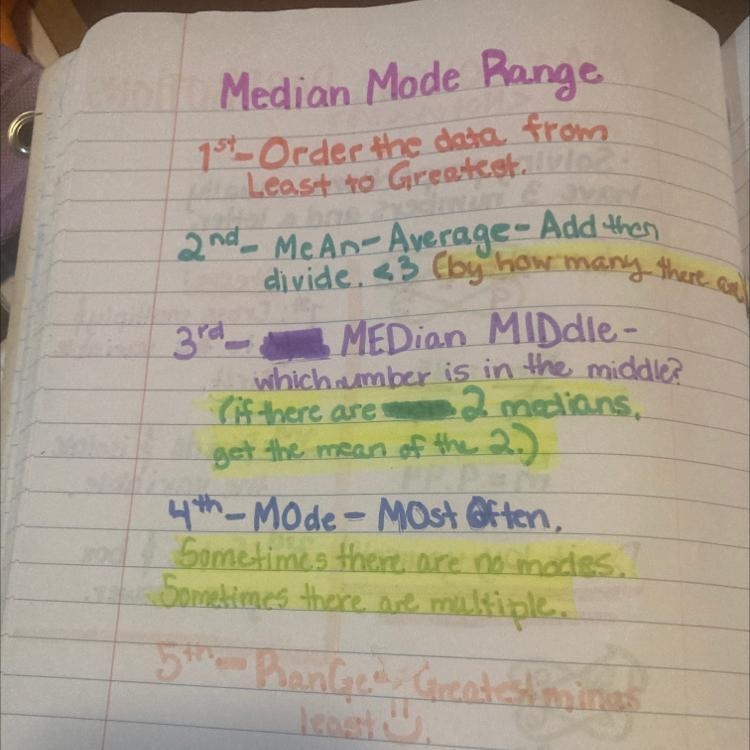 Median Mode Range
1st - Order the data from
Least to Greatest.
2nd - MeAn - Average - Add then
divide. <3 (by how many there are)
3rd - MEDian MIDdle -
which number is in the middle?
(if there are 2 medians,
get the mean of the 2.)
4th - MOde - MOst Often.
Sometimes there are no modes.
Sometimes there are multiple.
5th - RanGe - Greatest minus
least